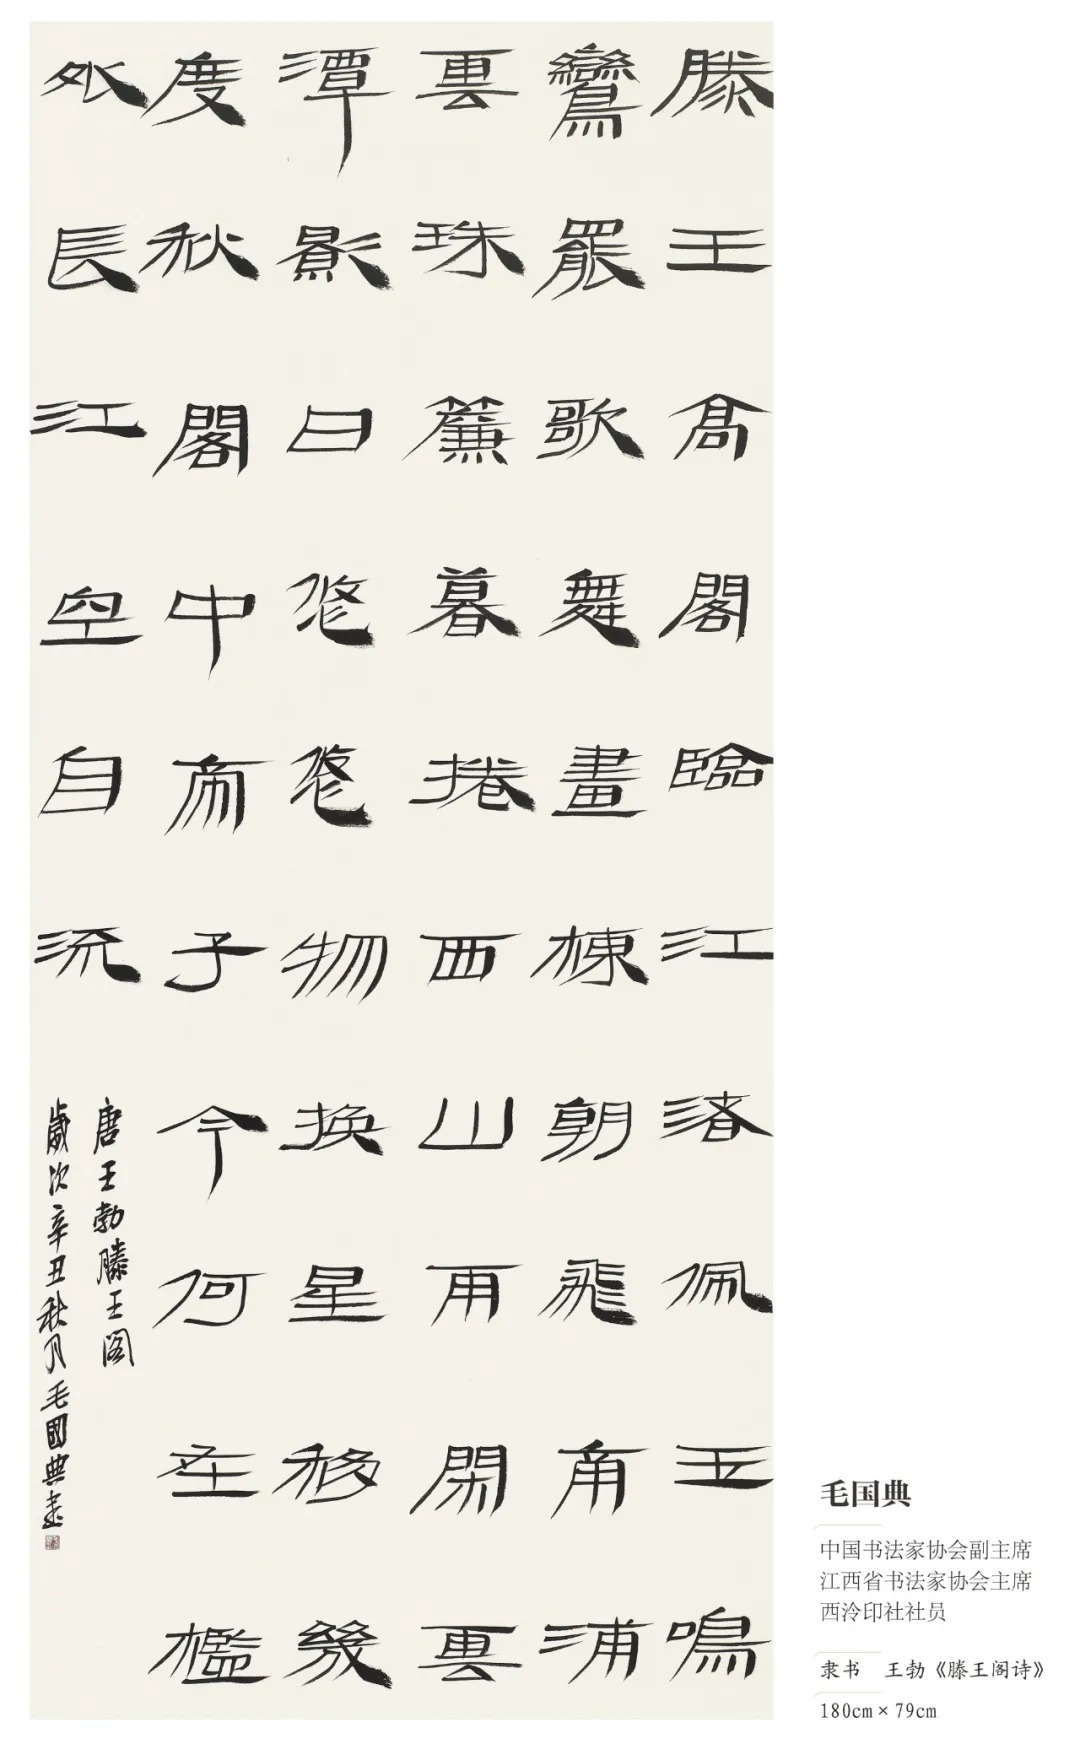 滕王高閣臨江渚佩玉鳴
鸞罷歌舞畫棟朝飛南浦
雲珠簾暮捲西山雨閑雲
潭影日悠悠物換星移幾
度秋閣中帝子今何在檻
外長江空自流
唐王勃滕王閣
歲次辛丑秋月毛國典書
毛国典
中国书法家协会副主席
江西省书法家协会主席
西泠印社社员
隶书 王勃《滕王阁诗》
180cm×79cm